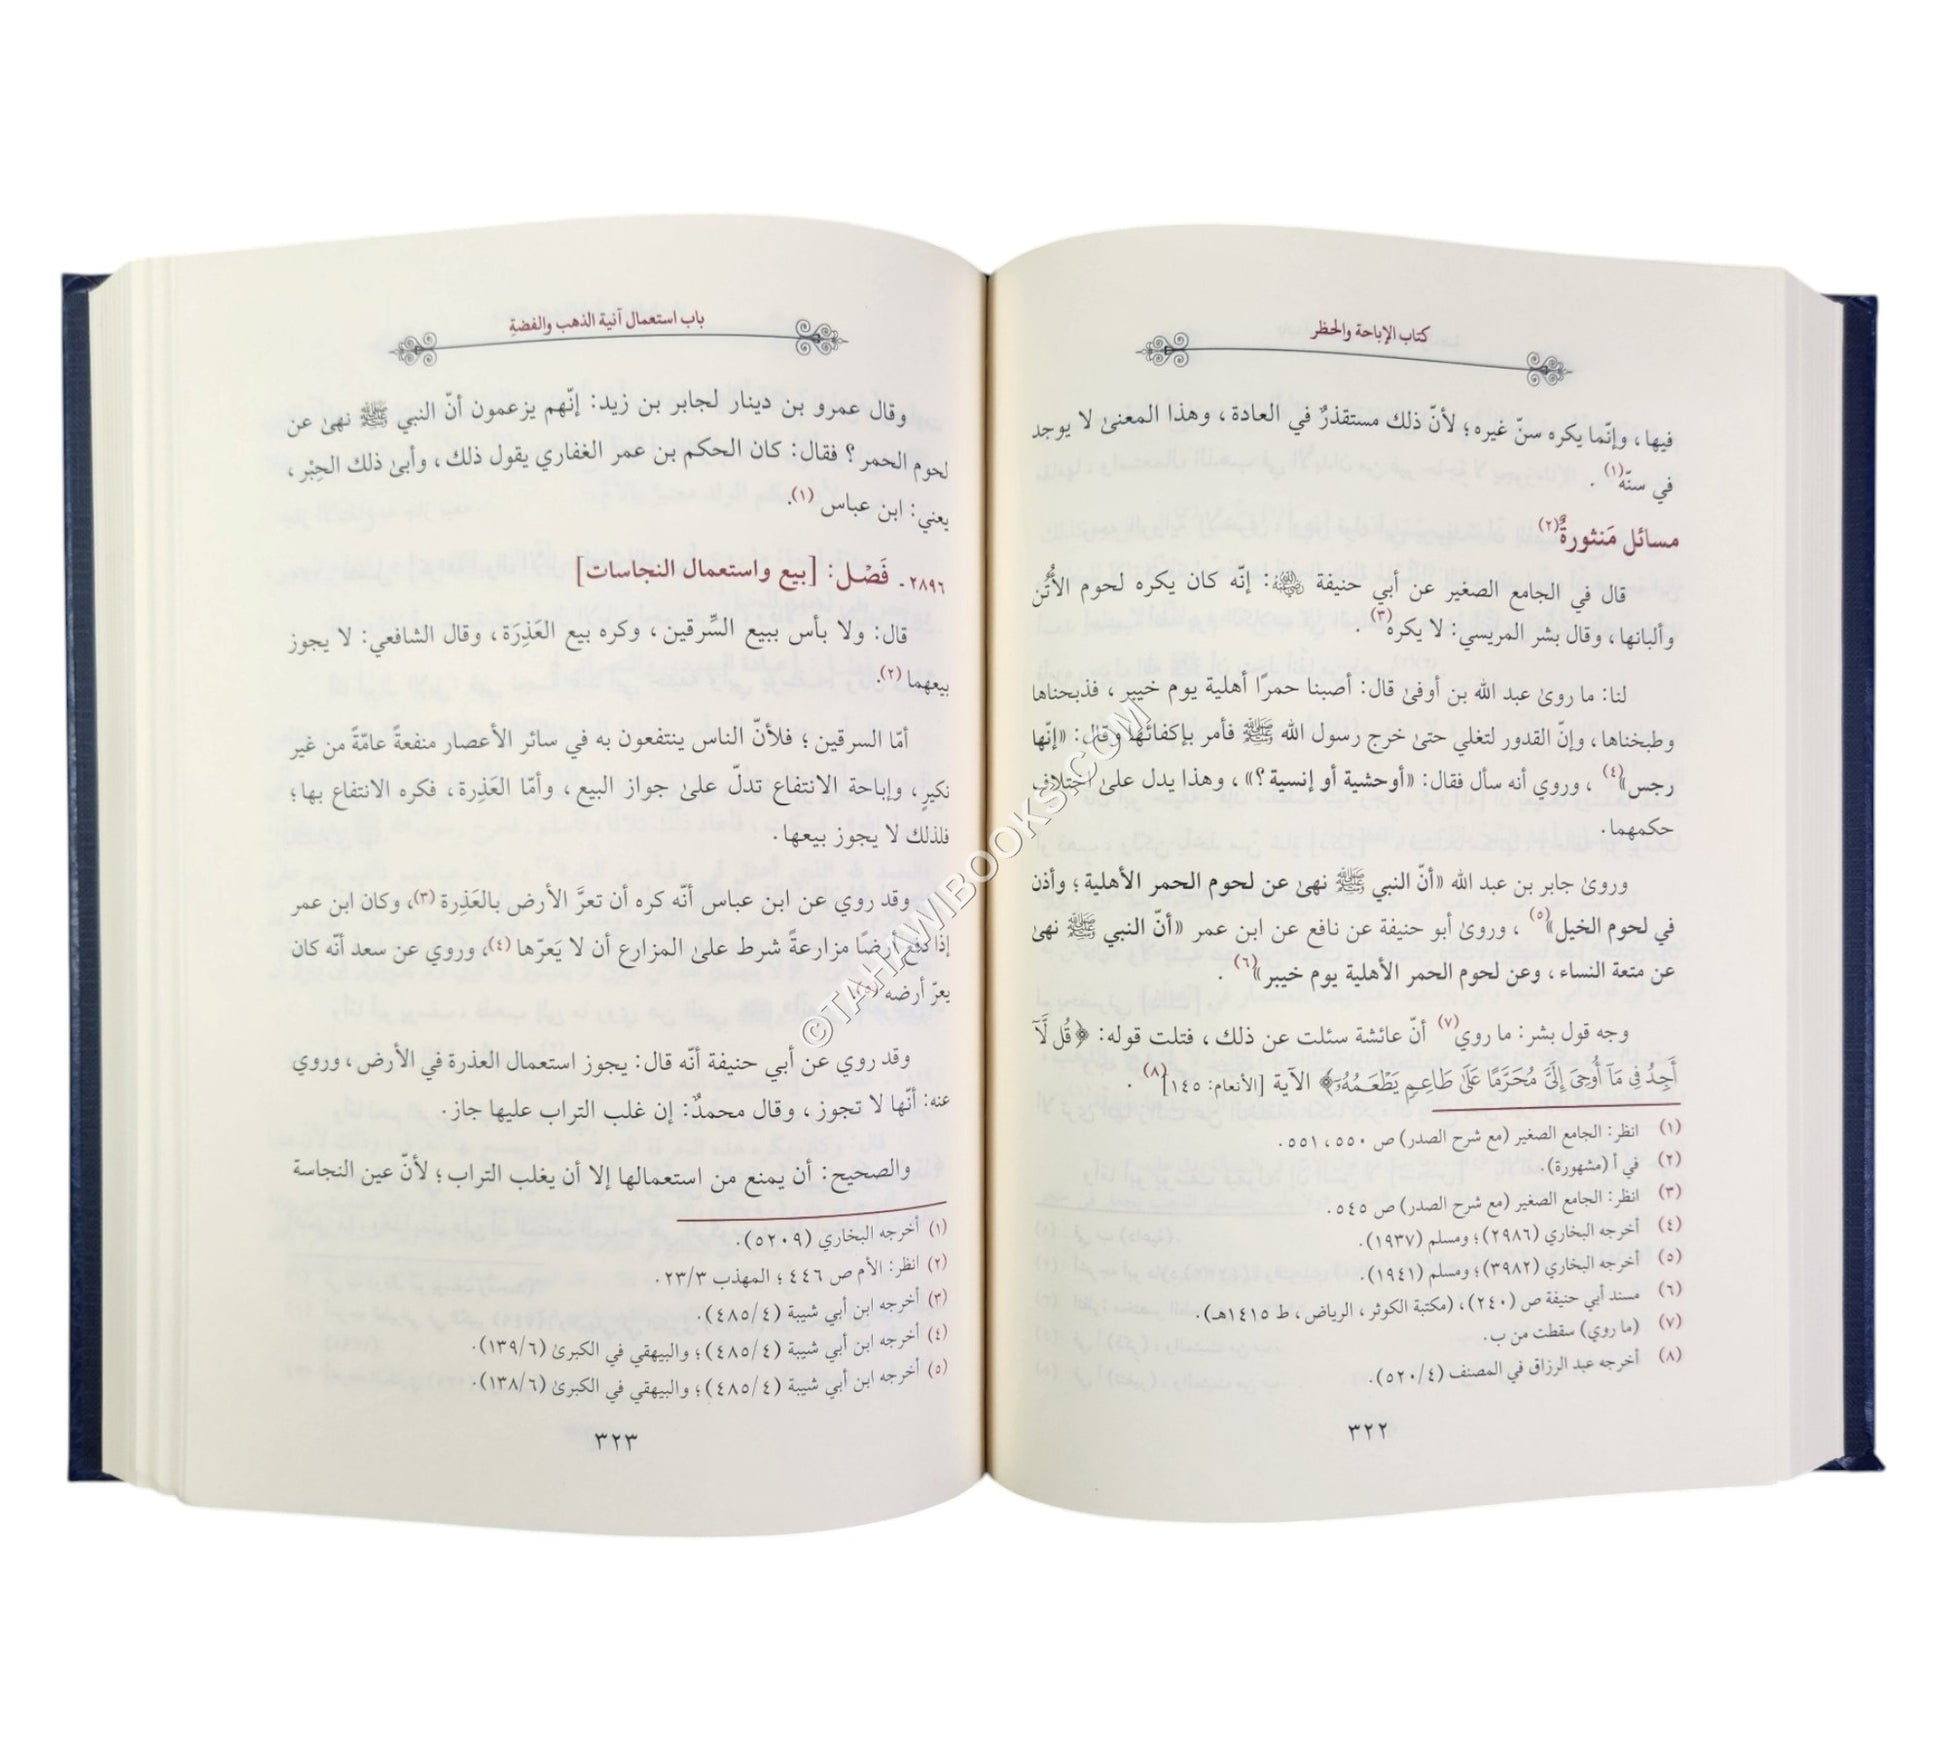 كتاب الإباحة والحظر
فيها، وإنّما يكره سنّ غيره؛ لأنّ ذلك مستقذرٌ في العادة، وهذا المعنىٰ لا يوجد
في سنّه(١).
مسائل مَنثورةٌ(٢)
قال في الجامع الصغير عن أبي حنيفة رضي الله عنه: إنّه كان يكره لحوم الأُتُن
وألبانها، وقال بشر المريسي: لا يكره(٣).
لنا: ما روىٰ عبد الله بن أوفىٰ قال: أصبنا حمرًا أهلية يوم خيبر، فذبحناها
وطبخناها، وإنّ القدور لتغلي حتىٰ خرج رسول الله ﷺ فأمر بإكفائها وقال: «إنّها
رجس»(٤)، وروي أنه سأل فقال: «أوحشية أو إنسية؟»، وهذا يدل علىٰ اختلاف
حكمهما.
وروىٰ جابر بن عبد الله «أنّ النبي ﷺ نهىٰ عن لحوم الحمر الأهلية؛ وأذن
في لحوم الخيل»(٥)، وروىٰ أبو حنيفة عن نافع عن ابن عمر «أنّ النبي ﷺ نهىٰ
عن متعة النساء، وعن لحوم الحمر الأهلية يوم خيبر»(٦).
وجه قول بشر: ما روي(٧) أنّ عائشة سئلت عن ذلك، فتلت قوله: ﴿قُل لَّآ
أَجِدُ فِي مَآ أُوحِيَ إِلَيَّ مُحَرَّمًا عَلَىٰ طَاعِمٖ يَطۡعَمُهُۥٓ﴾ الآية [الأنعام: ١٤٥](٨).
(١) انظر: الجامع الصغير (مع شرح الصدر) ص ٥٥٠، ٥٥١.
(٢) في أ (مشهورة).
(٣) انظر: الجامع الصغير (مع شرح الصدر) ص ٥٤٥.
(٤) أخرجه البخاري (٢٩٨٦)؛ ومسلم (١٩٣٧).
(٥) أخرجه البخاري (٣٩٨٢)؛ ومسلم (١٩٤١).
(٦) مسند أبي حنيفة ص (٢٤٠)، (مكتبة الكوثر، الرياض، ط ١٤١٥هـ).
(٧) (ما روي) سقطت من ب.
(٨) أخرجه عبد الرزاق في المصنف (٥٢٠/٤).
٣٢٢
باب استعمال آنية الذهب والفضة
وقال عمرو بن دينار لجابر بن زيد: إنّهم يزعمون أنّ النبي ﷺ نهىٰ عن
لحوم الحمر؟ فقال: كان الحكم بن عمر الغفاري يقول ذلك، وأبىٰ ذلك الحِبْر،
يعني: ابن عباس(١).
٢٨٩٦. فَصْل: [بيع واستعمال النجاسات]
قال: ولا بأس ببيع السِّرقين، وكره بيع العَذِرَة، وقال الشافعي: لا يجوز
بيعهما(٢).
أمّا السرقين؛ فلأنّ الناس ينتفعون به في سائر الأعصار منفعةً عامّةً من غير
نكيرٍ، وإباحة الانتفاع تدلّ علىٰ جواز البيع، وأمّا العَذِرة، فكره الانتفاع بها؛
فلذلك لا يجوز بيعها.
وقد روي عن ابن عباس أنّه كره أن تعرَّ الأرض بالعَذِرة(٣)، وكان ابن عمر
إذا دفع أرضًا مزارعةً شرط علىٰ المزارع أن لا يَعرّها(٤)، وروي عن سعد أنّه كان
يعرّ أرضه(٥).
وقد روي عن أبي حنيفة أنّه قال: يجوز استعمال العذرة في الأرض، وروي
عنه: أنّها لا تجوز، وقال محمدٌ: إن غلب التراب عليها جاز.
والصحيح: أن يمنع من استعمالها إلا أن يغلب التراب؛ لأنّ عين النجاسة
(١) أخرجه البخاري (٥٢٠٩).
(٢) انظر: الأم ص ٤٤٦؛ المهذب ٢٣/٣.
(٣) أخرجه ابن أبي شيبة (٤٨٥/٤).
(٤) أخرجه ابن أبي شيبة (٤٨٥/٤)؛ والبيهقي في الكبرىٰ (١٣٩/٦).
(٥) أخرجه ابن أبي شيبة (٤٨٥/٤)؛ والبيهقي في الكبرىٰ (١٣٨/٦).
٣٢٣
©TAHAWIBOOKS.COM